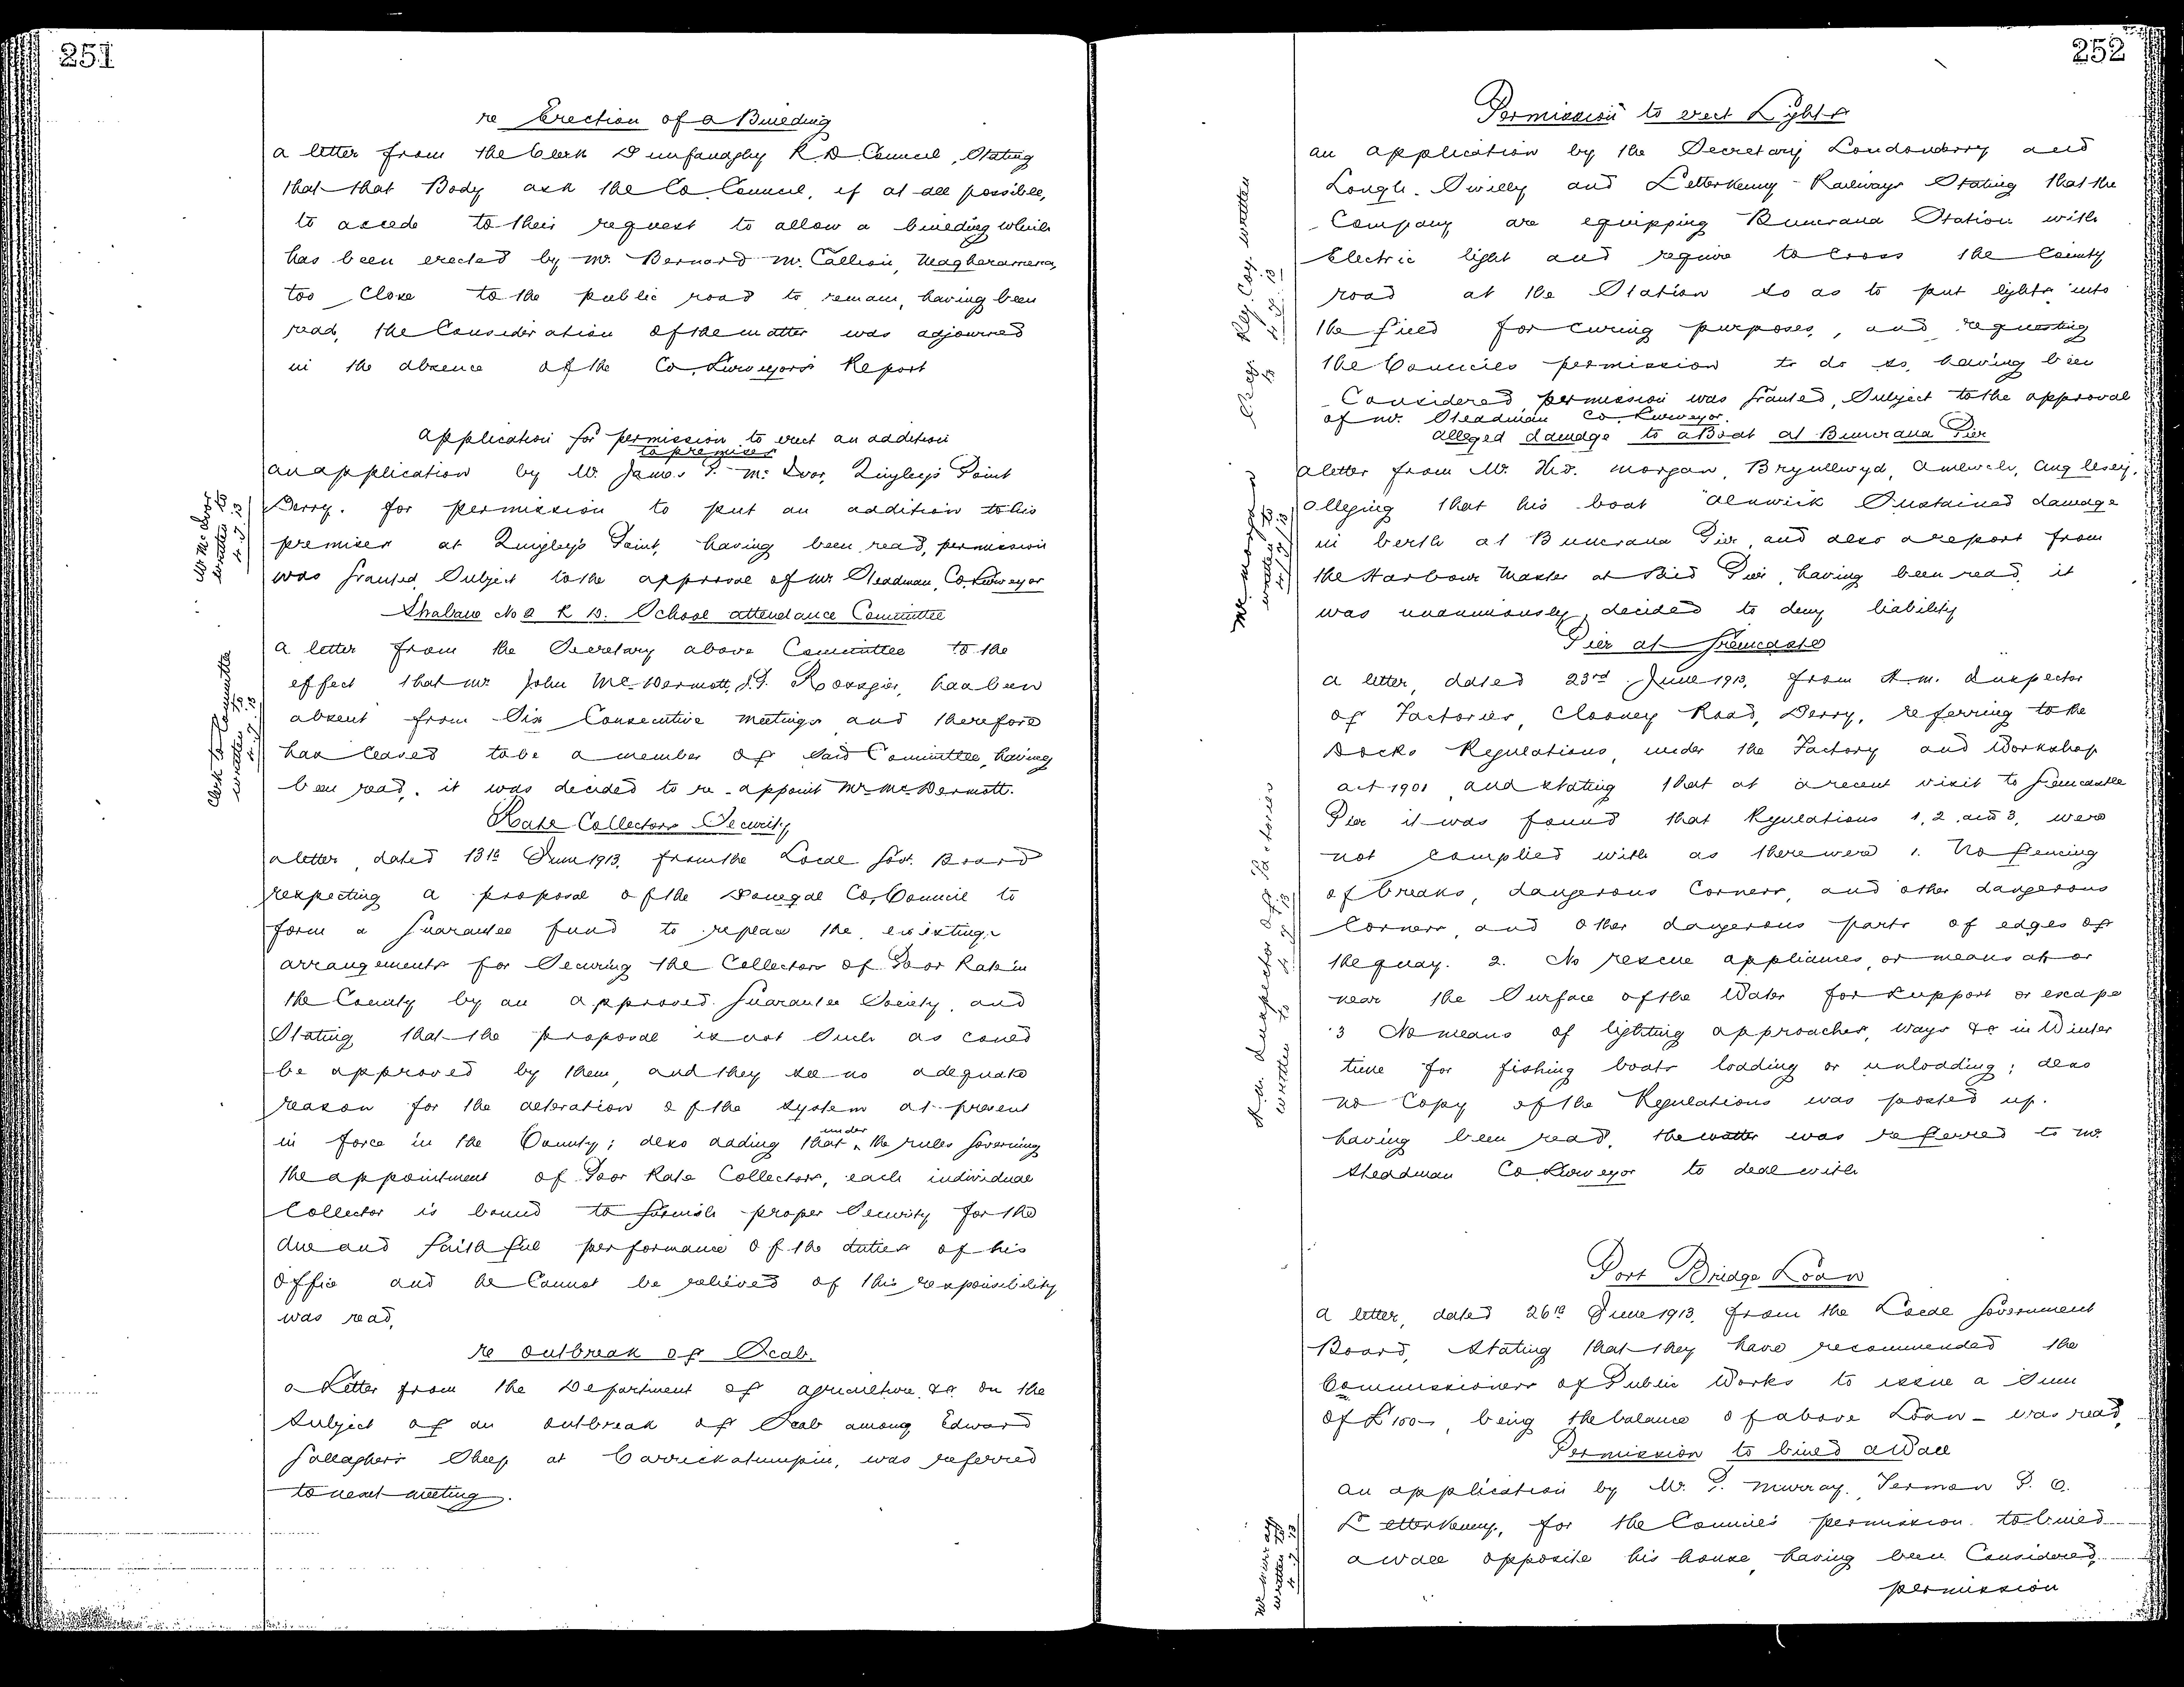 251
re Erection of a Building
a letter from the Clerk Dunfanaghy R D Council, Stating
that that Body ask the Co Council, if at all possible,
to accede to their request to allow a building which
has been erected by Mr. Bernard Mc. Callion, Magheramena,
too Close to the public road to remain, having been
read, the Consideration of the matter was adjourned
in the absence of the Co. Surveyor's Report
Application for permission to erect an addition
to premises
an application by Mr. James P. Mc Ivor, Quigley's Point
Derry. for permission to put an addition to his
premises at Quigley's Point, having been read, permission
was Granted Subject to the approval of Mr Steadman, Co. Surveyor
Mr. McIvor
written to
4.7.13
Strabane No 2 R D. School attendance Committee
a letter from the Secretary above Committee to the
effect that Mr John McDermott, J.P. Rooskey, has been
absent from Six Consecutive meetings and therefore
has ceased to be a member of Said Committee, having
been read, it was decided to re-appoint Mr McDermott.
Clerk to Committee
written to
4.7.13
Rate Collectors Security
a letter, dated 13th June 1913, from the Local Govt. Board
respecting a proposal of the Donegal Co. Council to
form a Guarantee fund to replace the existing
arrangements for Securing the Collectors of Poor Rate in
the County by an approved Guarantee Society, and
Stating that the proposal is not Such as could
be approved by them, and they see no adequate
reason for the alteration of the system at present
in force in the County; also adding that under the rules Governing
the appointment of Poor Rate Collectors, each individual
Collector is bound to furnish proper Security for the
due and faithful performance of the duties of his
Office and he Cannot be relieved of this responsibility
was read,
re outbreak of Scab.
a Letter from the Department of Agriculture &c on the
Subject of an outbreak of Scab among Edward
Gallagher's Sheep at Carrickatumpin, was referred
to next meeting.
252
Permission to erect Lights
an application by the Secretary Londonderry and
Lough Swilly and Letterkenny Railways Stating that the
Company are equipping Buncrana Station with
Electric light and require to Cross the County
road at the Station so as to put lights into
the field for curing purposes, and requesting
the Councils permission to do so, having been
Considered permission was Granted, Subject to the approval
of Mr. Steadman Co. Surveyor.
Rly. Coy. written
to 4.7.13
alleged damage to a Boat at Buncrana Pier
a letter from Mr. Morgan, Brynllwyd, Amlwch, Anglesey,
alleging that his boat "Alnwick Sustained damage
in berth at Buncrana Pier, and also a report from
the Harbour Master at Said Pier, having been read, it
was unanimously decided to deny liability
Mr Morgan
written to
4/7/13
Pier at Greencastle
a letter, dated 23rd June 1913, from H.M. Inspector
of Factories, Clooney Road, Derry, referring to the
Docks Regulations, under the Factory and Workshop
act 1901 and stating that at a recent visit to Greencastle
Pier it was found that Regulations 1, 2, and 3, were
not complied with as there were 1. No fencing
of breaks, dangerous Corners, and other dangerous
Corners, and other dangerous parts of edges of
the quay. 2. No rescue appliances, or means at or
near the Surface of the Water for support or escape
3 No means of lighting approaches, ways &c in Winter
time for fishing boats loading or unloading; also
no Copy of the Regulations was posted up.
having been read, the matter was referred to Mr.
Steadman Co Surveyor to deal with
H.M. Inspector of Factories
written to 4.7.13
Port Bridge Loan
a letter, dated 26th June 1913, from the Local Government
Board, Stating that they have recommended the
Commissioners of Public Works to issue a Sum
of £100, being the balance of above Loan - was read,
Permission to build a Wall
an application by Mr. P. Murray, Termon P.O.
Letterkenny, for the Council's permission to build
a wall opposite his house, having been Considered,
permission
Mr Murray
written to
4.7.13